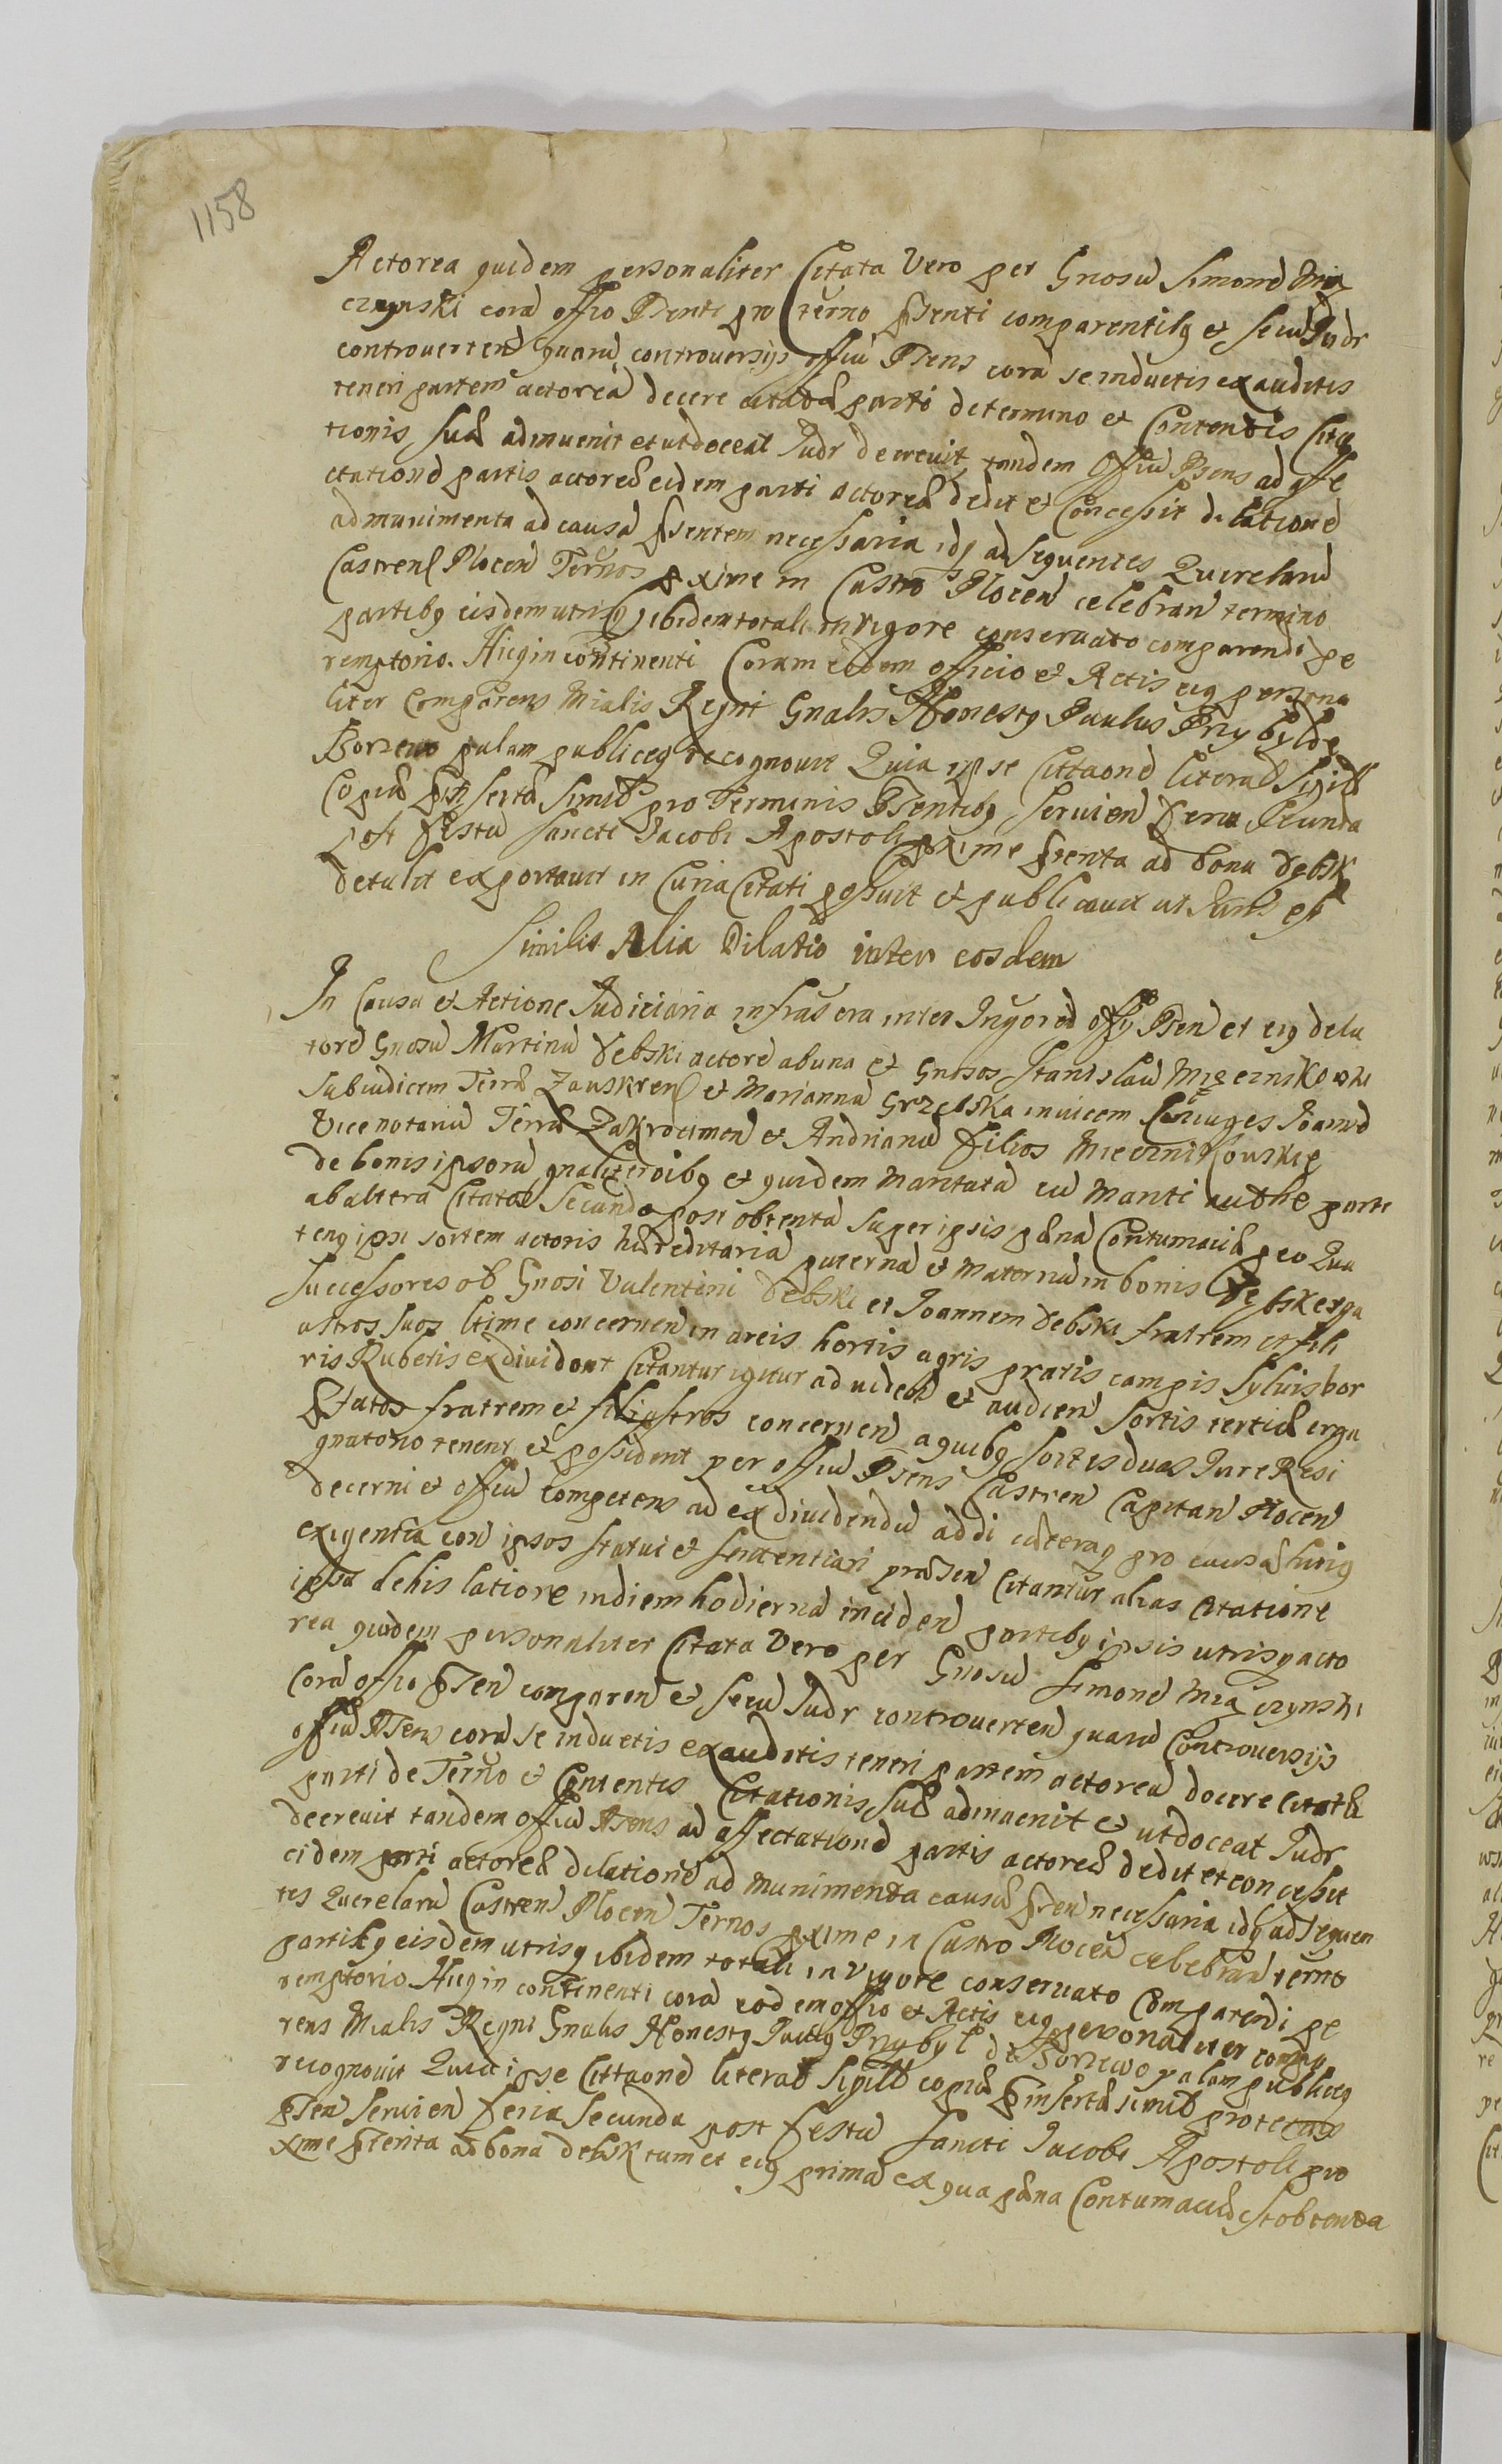 1158
Actorea quidem personaliter Citata Vero per Gnosũ Simonẽ Mią
czynski corã offio Psenti pro terno psenti comparentibq et secũ Judr
controverten quarũ controversijs offiũ Psens corã se inductis exauditis
teneri partem actoreã docere citatæ parti de termino et Contentis Cita
tionis suæ adinvenit et ut doceat Judr decrevit tandem Offiũ Psens ad affe
ctationẽ partis actoreæ eidem parti actoreæ dedit et Concessit dilationẽ
ad munimenta ad causã psentem necessaria idq ad sequentes Querelarũ
Castren Plocen Ternos pxime in Castro Plocen celebran termino
partibq eisdem utrisq ibidem totali in vigore conservato comparendi pe
remptorio. Hicq in continenti Coram eodem officio et Actis eiq persona
liter Comparens Mialis Regni Gnalis Honestq Paulus Przybyl de
Borzewo palam publiceq recognovit Quia ipse Cittaonẽ literas Sigill
Copiæ psertæ simil pro Terminis Psentibq servien Feria Secunda
post Festũ Sancti Jacobi Apostoli pxime psenta ad bona Dębsk
detulit exportavit in Curia Citati posuit et publicavit ut Juris est
Similis Alia Dilatio inter eosdem
In Causa et Actione Judiciaria infrascra inter Instigorẽ offij Psen et eiq dela
torẽ Gnosũ Martinũ Dębski actorẽ ab una et Gnosos Stanislaũ Mięcznikowski
Subiudicem Terræ Zauskren et Mariannã Grzębska invicem Coniuges Joannẽ
Vicenotariũ Terræ Zakrocimen et Andrianũ Filios Miecznikowskie
de bonis ipsorũ gnaliter oibq et quidem maritatã cũ Mariti authe parte
ab altera Citatæ Secundo post obtentã super ipsis pænã Contumaciæ pro Qua
tenq ipsi sortem actoris hæreditariã paternã et maternũ in bonis Dębsk erga
successores ob Gnosi Valentini Dębski et Joannem Dębski fratrem et fili
astros suos ltime concernen in areis hortis agris pratis campis sylvis bor
ris Rubetis exdividant Citantur igitur ad viden et audien sortis tertiæ erga
pfatos fratrem et filiastros concernen a quibq sortes duas Jure Resi
gnatorio tenent et possident per offiũ Psens Castren Capitan Plocen
decerni et offiũ competens ad exdividendũ addi cæteraq pro causæ huiq
exigentia con ipsos statui et sententiari præsen Citantur alias citatione
ipsa de his latiore in diem hodiernã inciden partibq ipsis utrisq acto
rea quidem personaliter Citata Vero per Gnosũ Simonẽ Miączynski
Corã offio psen comparen et secũ Judr controverten quarũ Controversijs
offiũ Psens corã se inductis exauditis teneri partem actoreã docere citatæ
parti de Terno et Contentis Citationis suæ adinvenit et ut doceat Judr
decrevit tandem offiũ Psens ad affectationẽ partis actoreæ dedit et concessit
eidem parti actoreæ dilationẽ ad munimenta causæ psen necessaria idq ad sequen
tes Querelarũ Castren Plocen Ternos pxime in Castro Plocen celebran terno
partibq eisdem utrisq ibidem totali in vigore conservato Comparendi pe
remptorio. Hicq in continenti corã eodem offio et Actis eiq personaliter compa
rens Mialis Regni Gnalis Honestq Paulq Przybyl de Borzewo palam publiceq
recognovit Quia ipse Cittaonẽ literas Sigill copiæ pinsertæ simil pro ternis
psen servien feria secunda post festũ Sancti Jacobi Apostoli pro
xime psenta ad bona debsk tum et eiq primã ex qua pæna Contumaciæ est obtenta